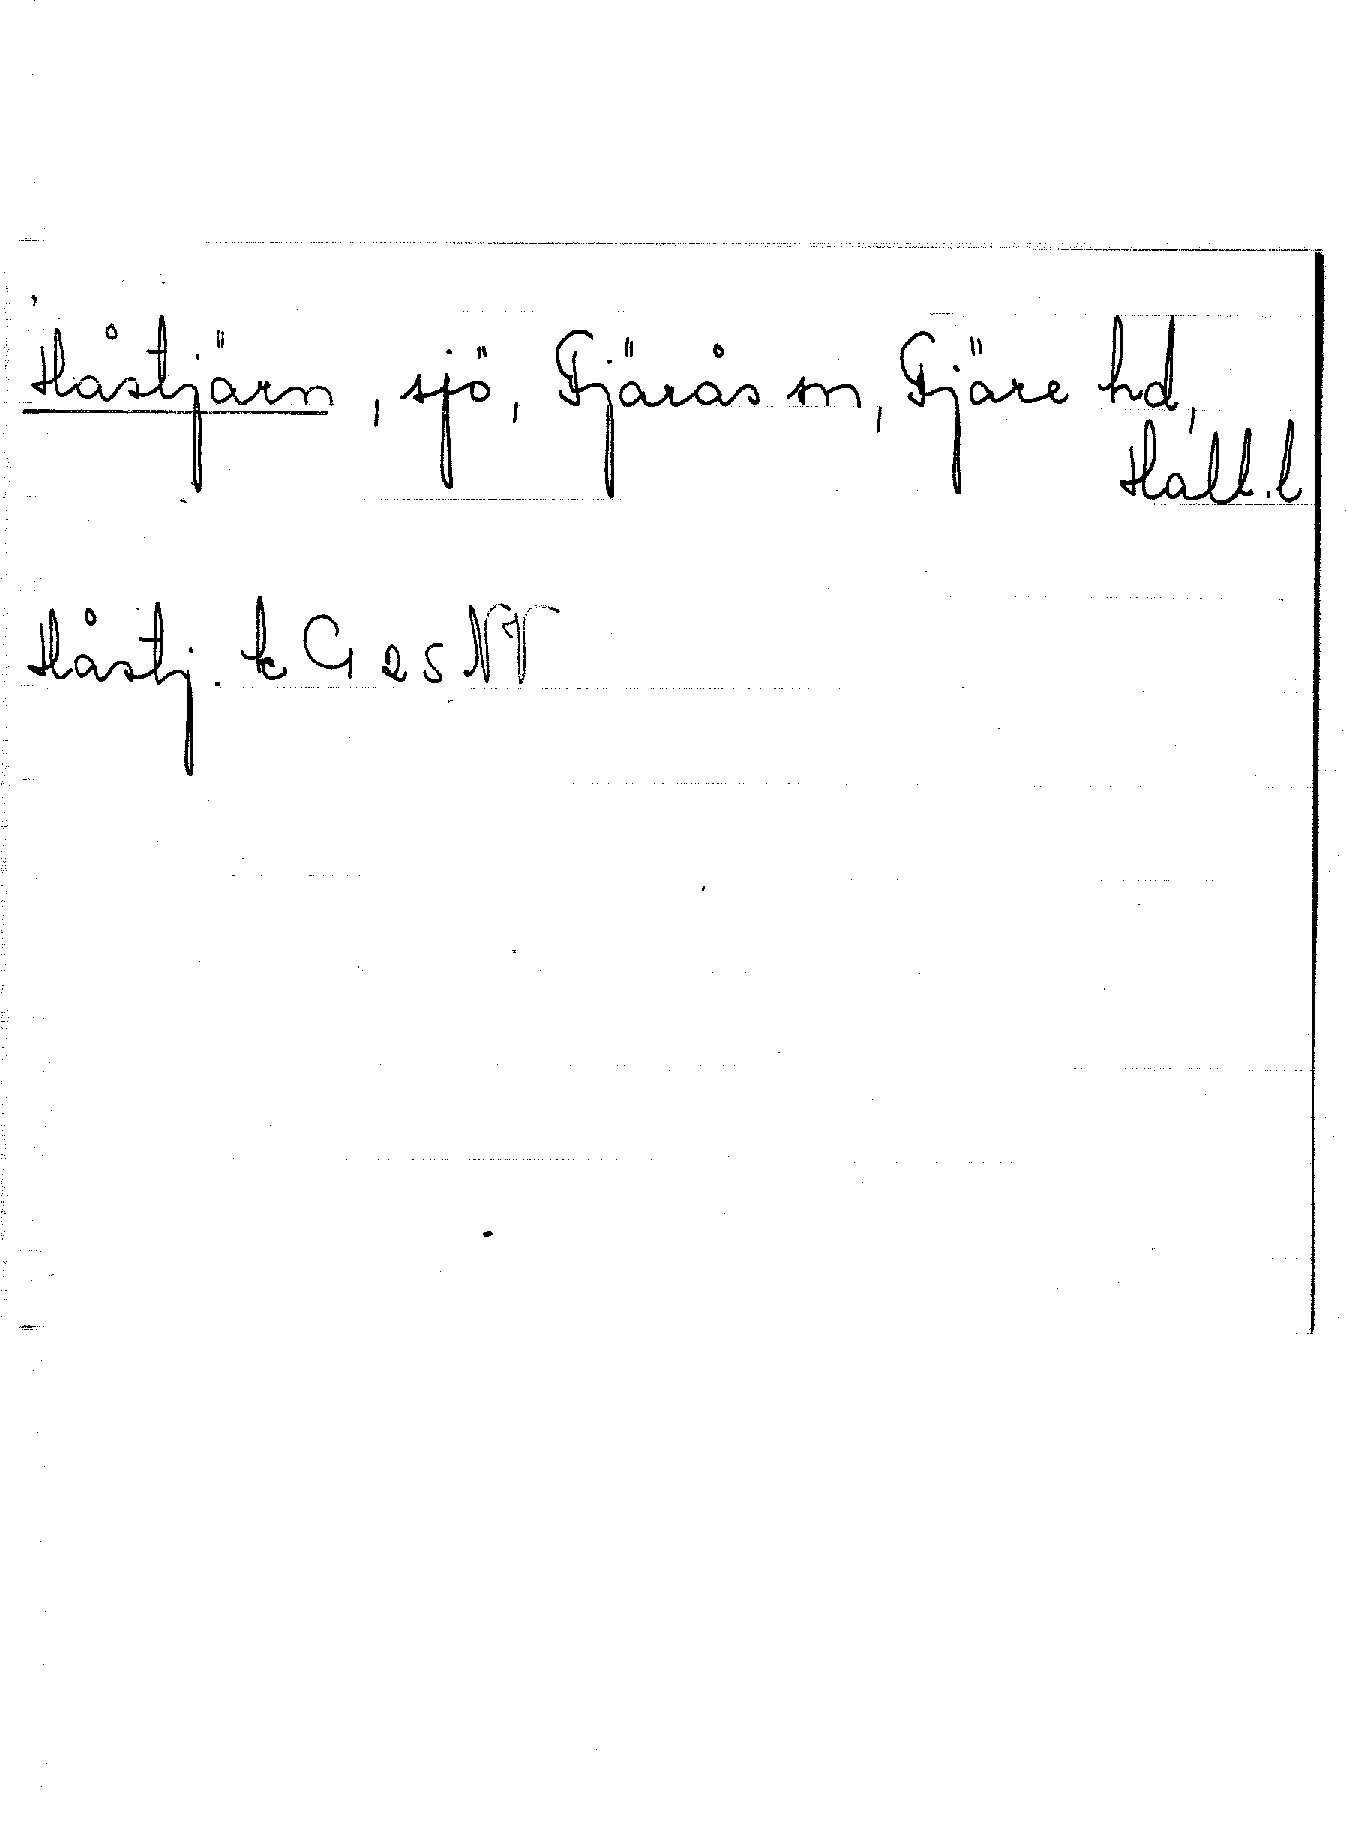 Håstjärn, sjö, Fjärås sn, Fjäre hd,
Hall.l
Håstj. k G 25 NV